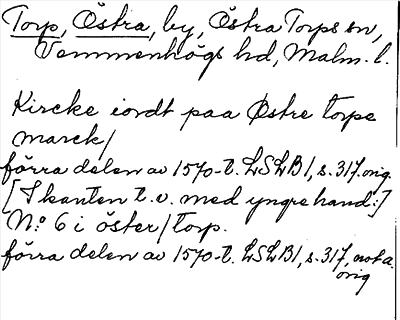 Torp, Östra, by, Östra Torps sn,
Vemmenhögs hd, Malm. l.
Kircke iordt paa Østre torpe
marck/
förra delen av 1570-t. LSLB1, s. 317. orig.
[I kanten t.v. med yngre hand:]
No: 6 i öster/torp.
förra delen av 1570-t. LSLB1, s. 317, nota.
orig